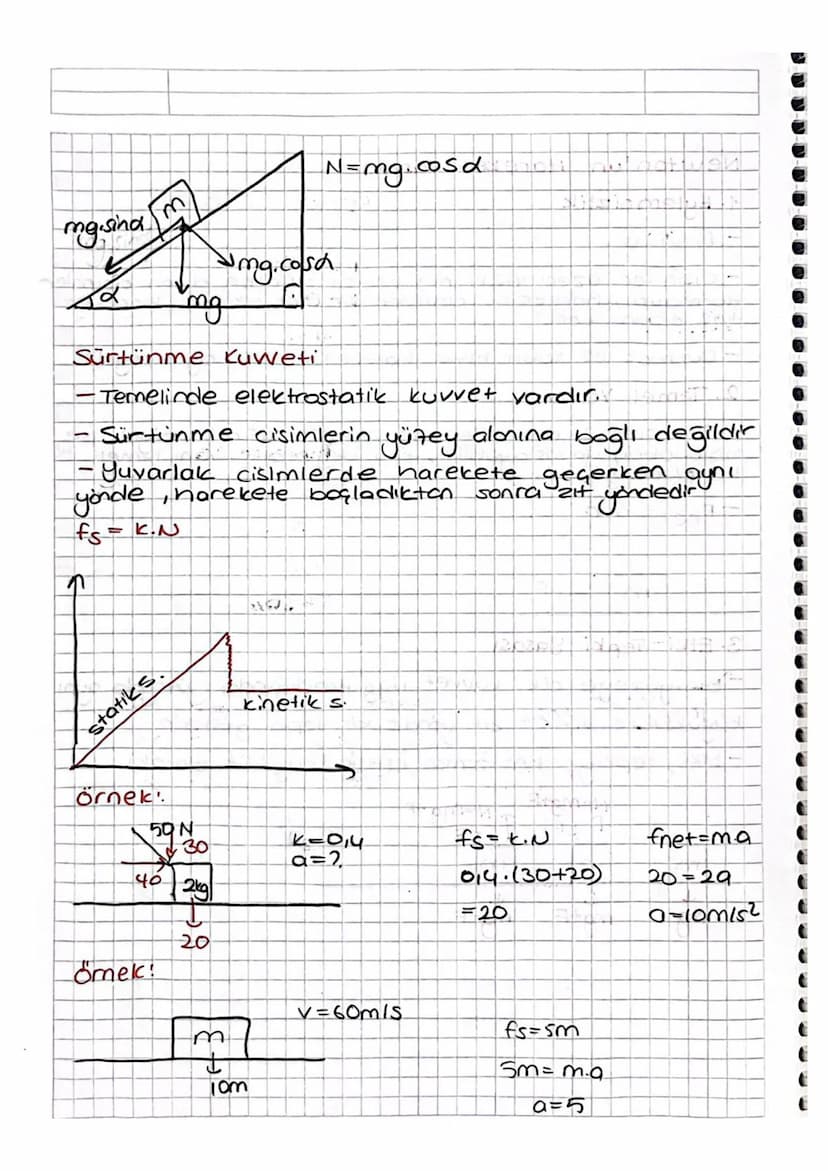 N=mg.cosα
m
mg.sinα
mg.cosα
α
mg
Sürtünme Kuvveti
- Temelinde elektrostatik kuvvet vardır.
- Sürtünme cisimlerin yüzey alanına bağlı değildir
- Yuvarlak cisimlerde harekete geçerken aynı
yönde, harekete başladıktan sonra zıt yöndedir
fs = k.N
statik s.
kinetik s.
Örnek:
50 N
30
40
2kg
20
k=0,4
a=?
fs= k.N
0,4.(30+20)
=20
fnet=ma
20=2a
a=10m/s²
Örnek:
m
10m
v=60m/s
fs=5m
5m=m.a
a=5